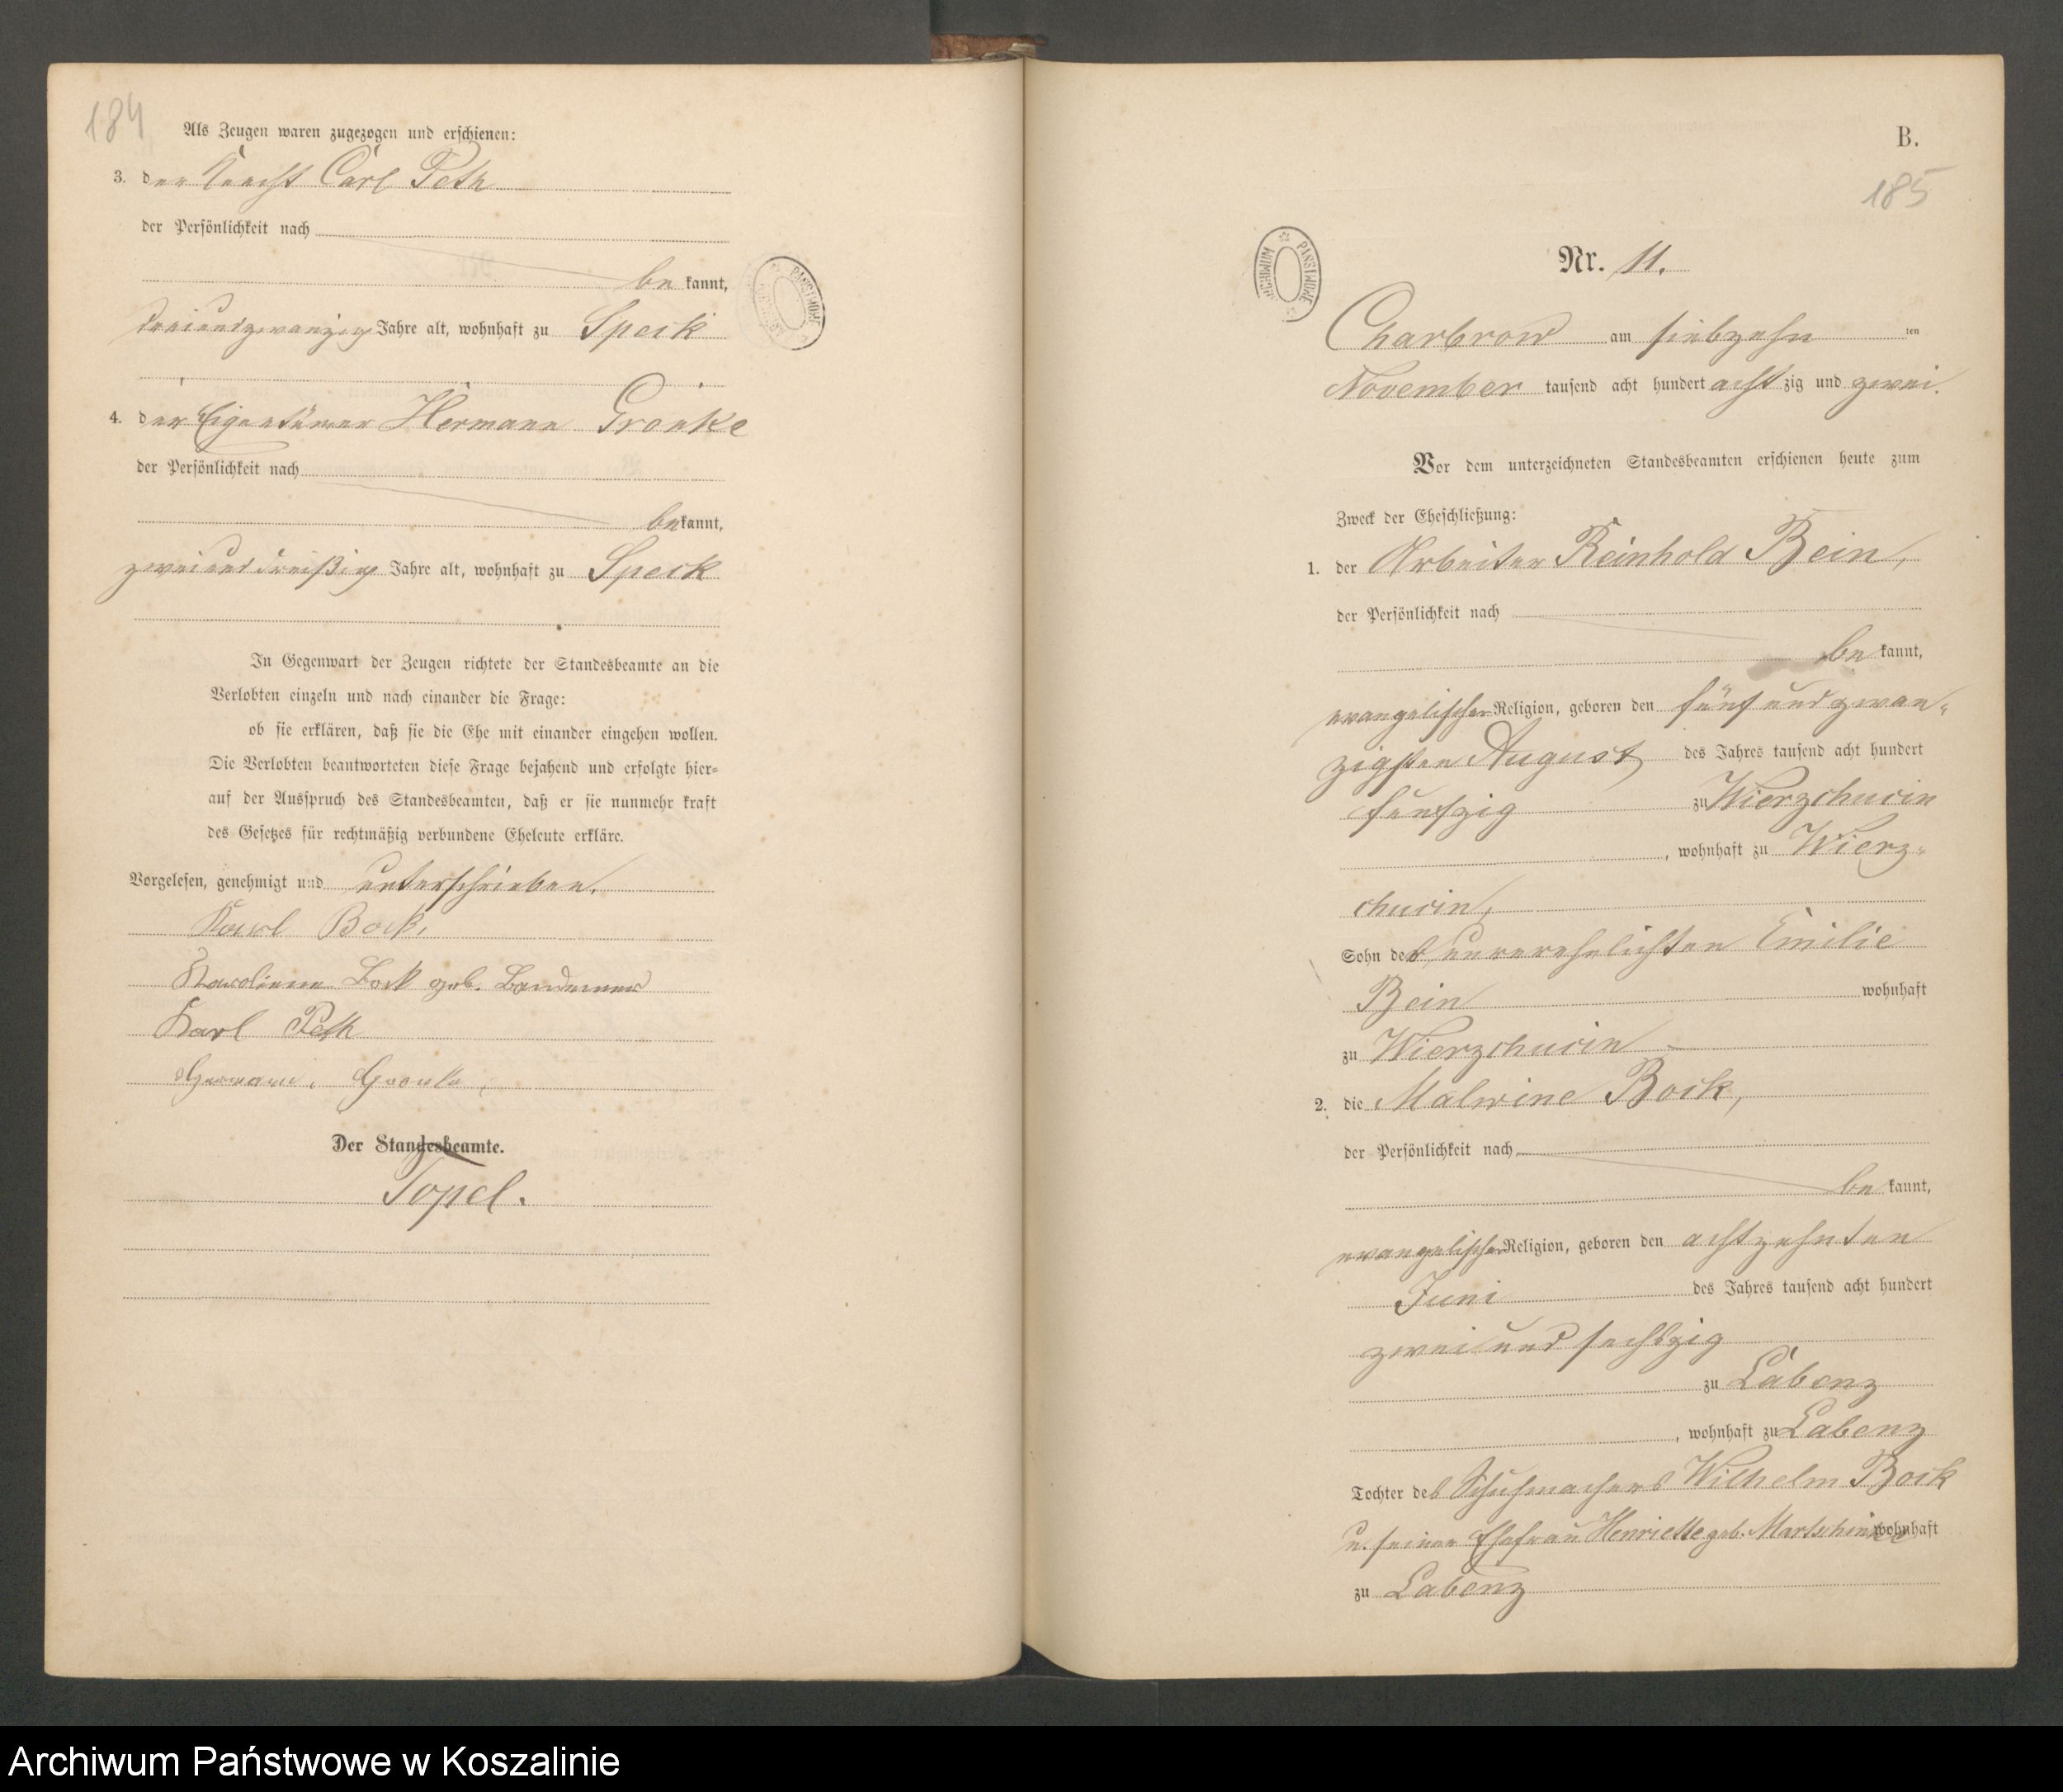 184
Als Zeugen waren zugezogen und erschienen:
3. der Knecht Carl Peth
der Persönlichkeit nach
be kannt,
dreiundzwanzig Jahre alt, wohnhaft zu Speck
4. der Eigentümer Hermann Gronke
der Persönlichkeit nach
bekannt,
zweiunddreißig Jahre alt, wohnhaft zu Speck
In Gegenwart der Zeugen richtete der Standesbeamte an die
Verlobten einzeln und nach einander die Frage:
ob sie erklären, daß sie die Ehe mit einander eingehen wollen.
Die Verlobten beantworteten diese Frage bejahend und erfolgte hier-
auf der Ausspruch des Standesbeamten, daß er sie nunmehr kraft
des Gesetzes für rechtmäßig verbundene Eheleute erkläre.
Vorgelesen, genehmigt und unterschrieben.
Karl Bock.
Karoline Bock geb.
Karl Peth
Hermann Gronke
Der Standesbeamte.
Topel.
ARCHIWUM PAŃSTWOWE
B.
185
ARCHIWUM PAŃSTWOWE
Nr. 11.
Charbrow am siebzehn ten
November tausend acht hundert acht zig und zwei.
Vor dem unterzeichneten Standesbeamten erschienen heute zum
Zweck der Eheschließung:
1. der Arbeiter Reinhold Bein,
der Persönlichkeit nach
be kannt,
evangelischer Religion, geboren den fünf und zwan-
zigsten August des Jahres tausend acht hundert
fünfzig zu Wierzchucin
, wohnhaft zu Wierz-
chucin,
Sohn der unverehelichten Emilie
Bein wohnhaft
zu Wierzchucin
2. die Malwine Bock,
der Persönlichkeit nach
be kannt,
evangelischer Religion, geboren den achtzehnten
Juni des Jahres tausend acht hundert
zwei und sechszig
zu Labenz
, wohnhaft zu Labenz
Tochter des Schuhmachers Wilhelm Bock
u. seiner Ehefrau Henriette geb. wohnhaft
zu Labenz
Archiwum Państwowe w Koszalinie